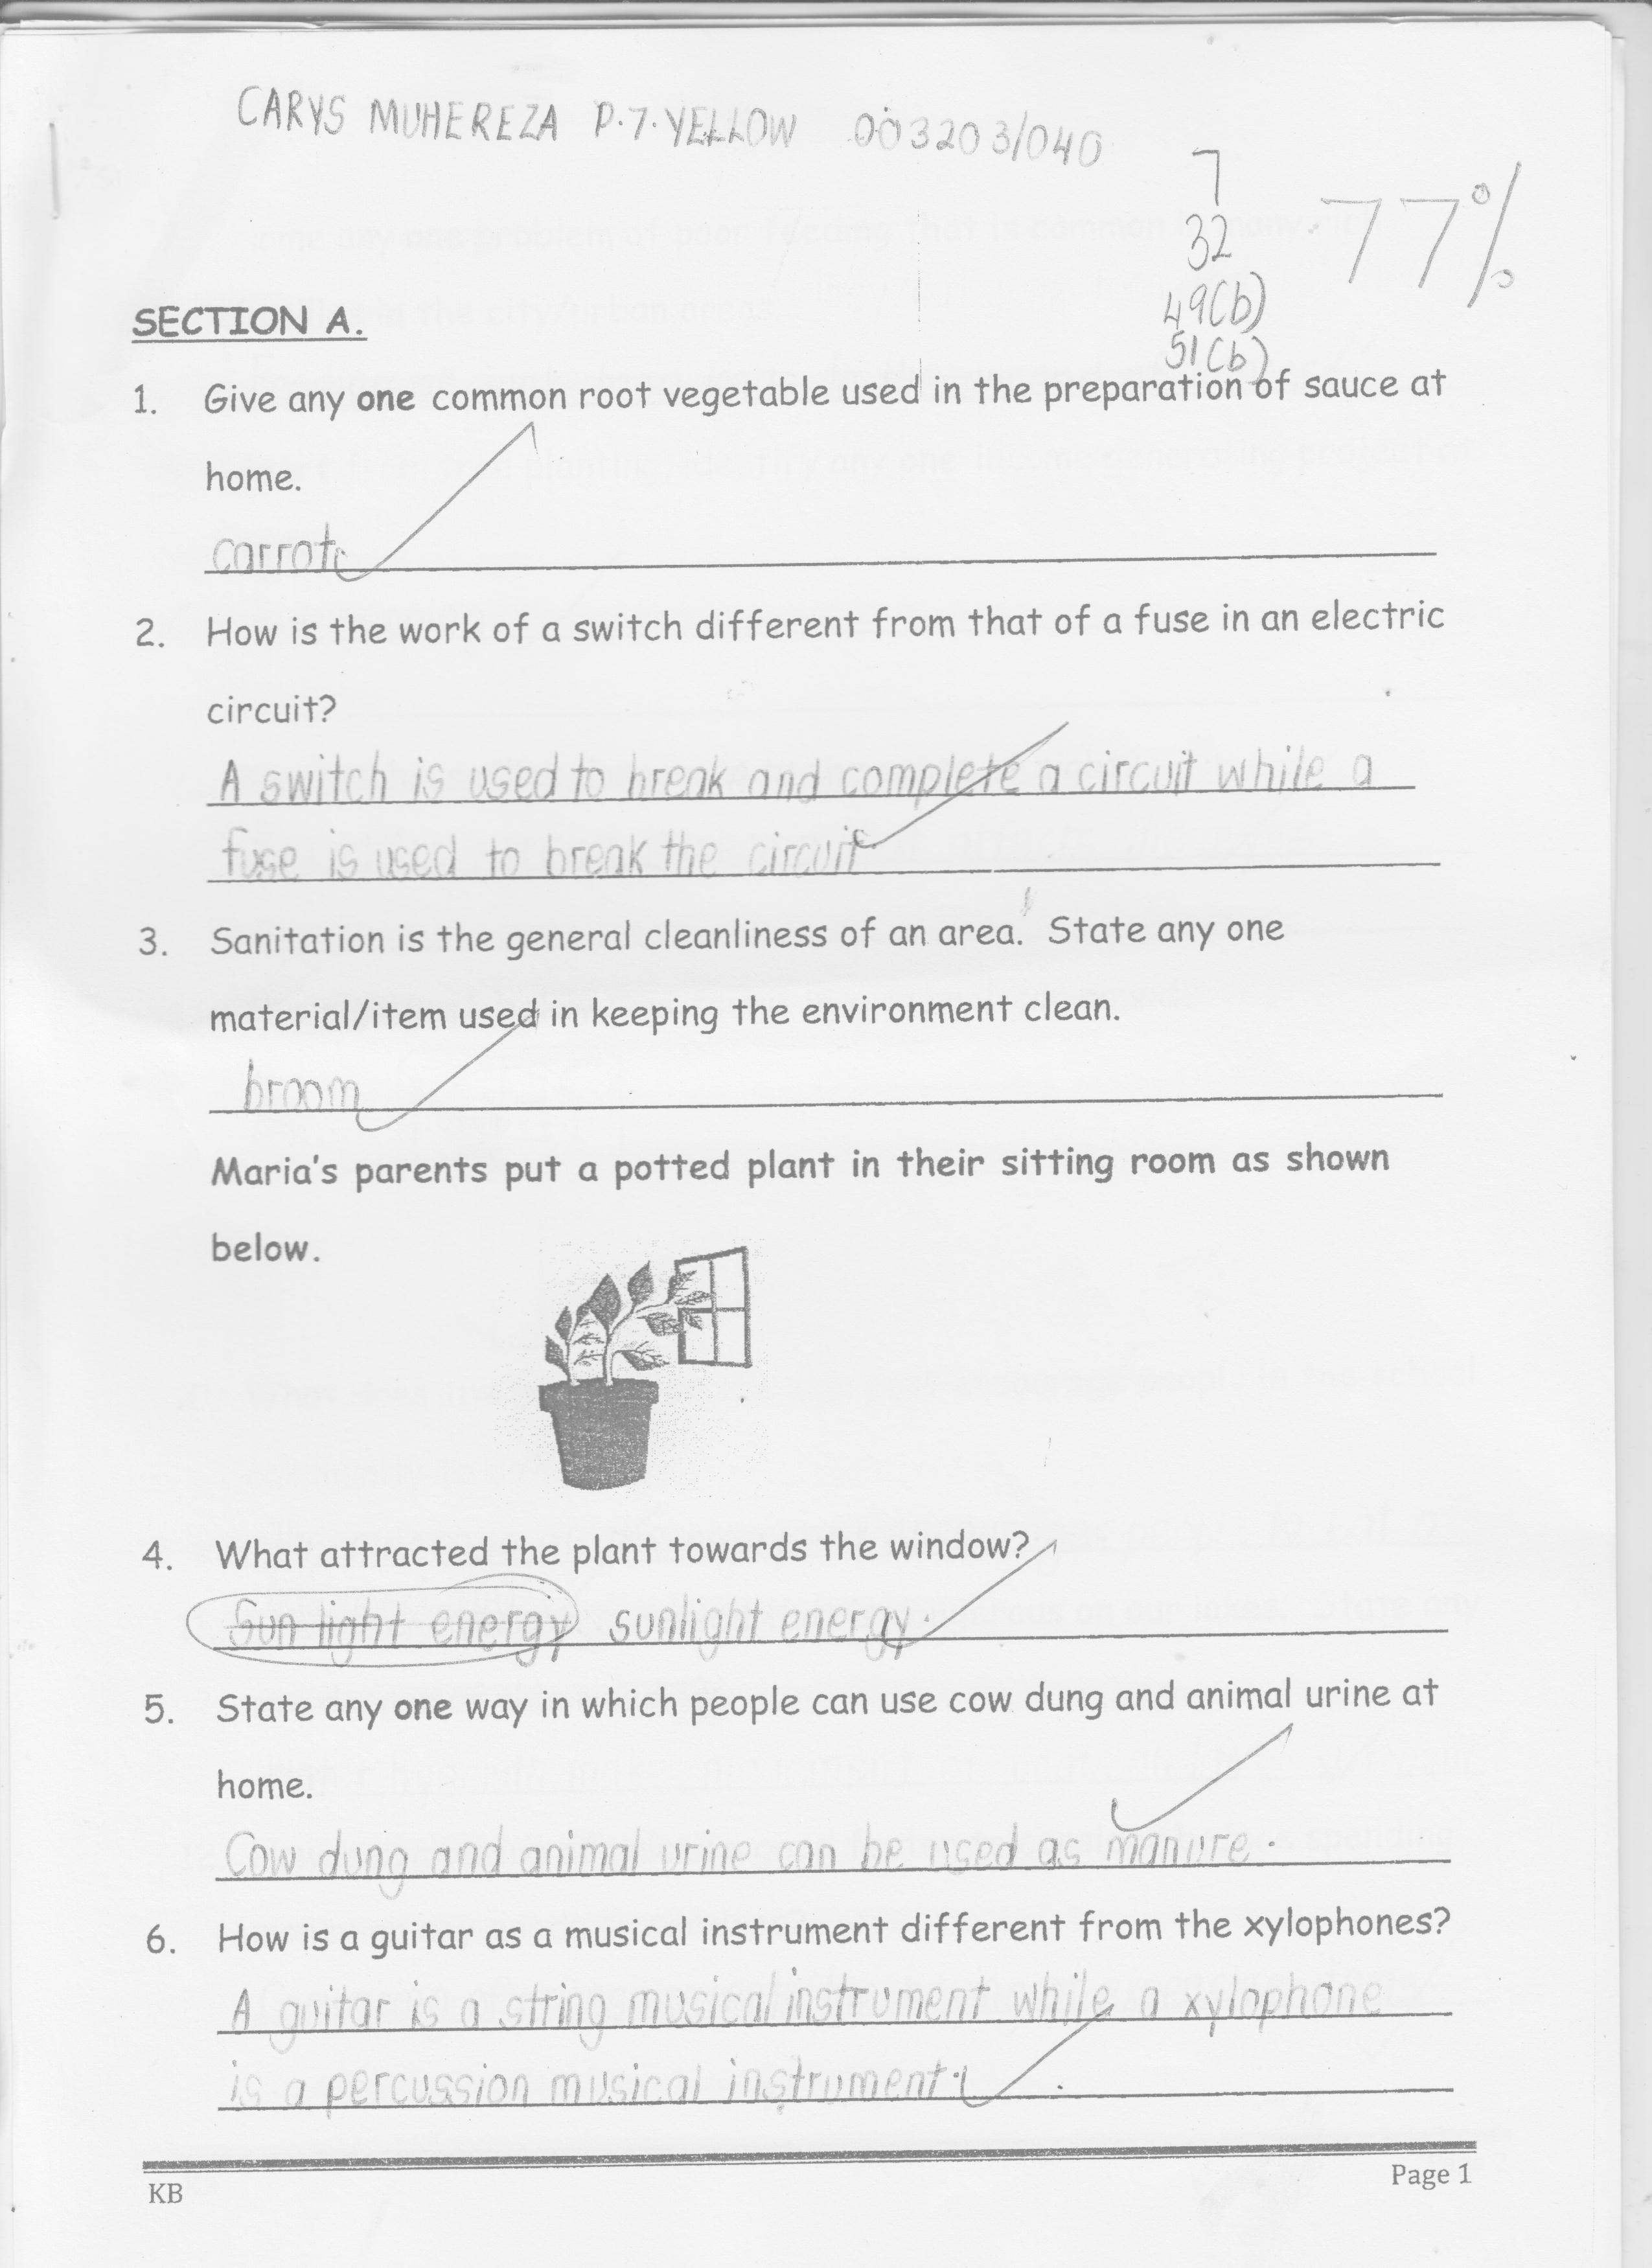 CARYS MUHEREZA P.7.YELLOW 003203/040
7
32
49(b)
51(b)
77%
SECTION A.
1. Give any one common root vegetable used in the preparation of sauce at
home.
carrot
2. How is the work of a switch different from that of a fuse in an electric
circuit?
A switch is used to break and complete a circuit while a
fuse is used to break the circuit
3. Sanitation is the general cleanliness of an area. State any one
material/item used in keeping the environment clean.
broom
Maria's parents put a potted plant in their sitting room as shown
below.
4. What attracted the plant towards the window?
Sun light energy sunlight energy.
5. State any one way in which people can use cow dung and animal urine at
home.
Cow dung and animal urine can be used as manure.
6. How is a guitar as a musical instrument different from the xylophones?
A guitar is a string musical instrument while a xylophone
is a percussion musical instrument.
KB
Page 1